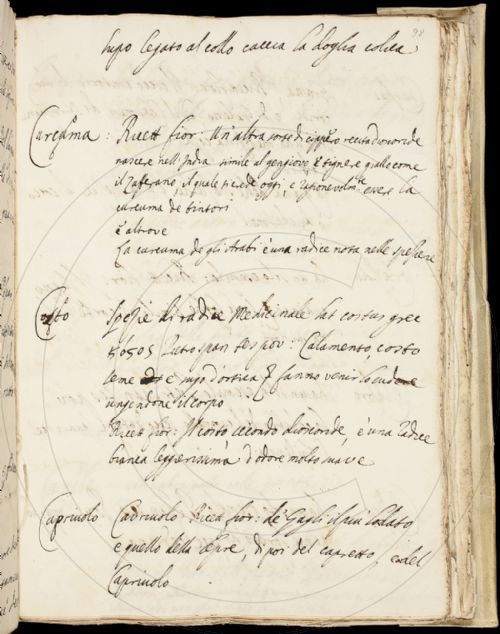 98
lupo legato al collo caccia la doglia colica
Curcuma : Ricett fior: Un'altra sorte di cippero recita dioscoride
nascere nell'India simile al gengiovo, e tignere giallo come
il Zafferano, il quale si crede oggi, e ragionevolmte essere la
curcuma de tintori
E altrove
La curcuma degli Arabi è una radice nota nelle spezierie
Costo Spezie di radice Medicinale lat costus grec
Κόςος pov: Calamento, costo
seme e sugo d'ortica fanno venir lo sudore
ungendone il corpo
Ricett fior: Il costo secondo dioscoride, è una radice
bianca leggierissima d'odore molto suave
Capriuolo Cavriuolo Ricett fior: de' Gagli il più lodato
e quello della lepre, di poi del capretto, e del
Capriuolo